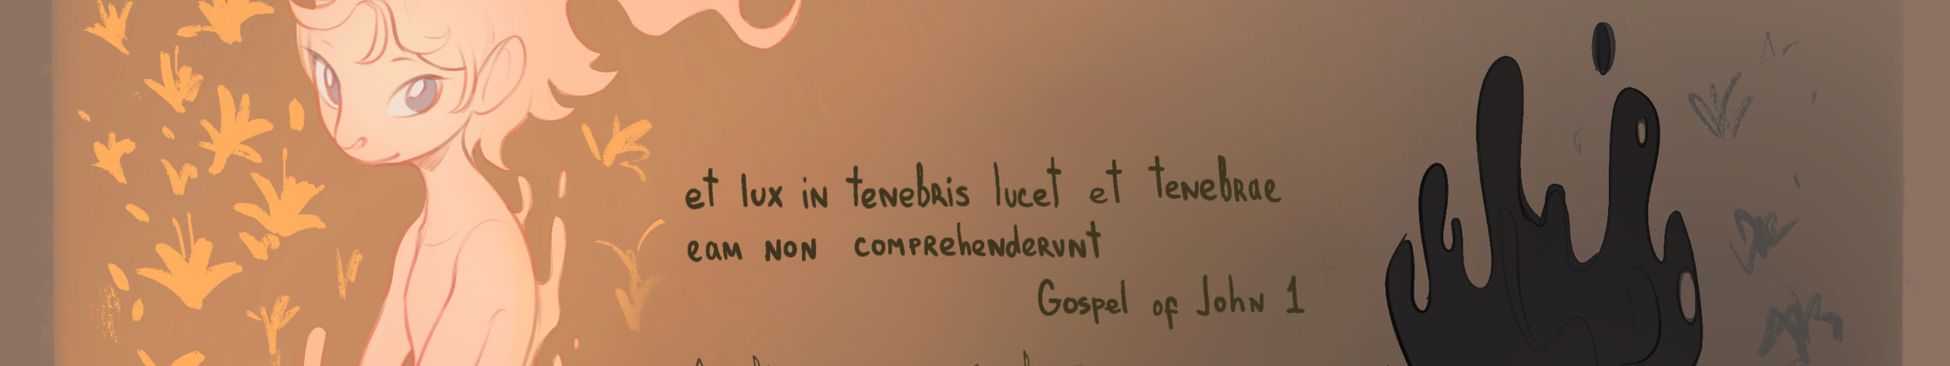 et lux in tenebris lucet et tenebrae
eam non comprehenderunt
Gospel of John 1